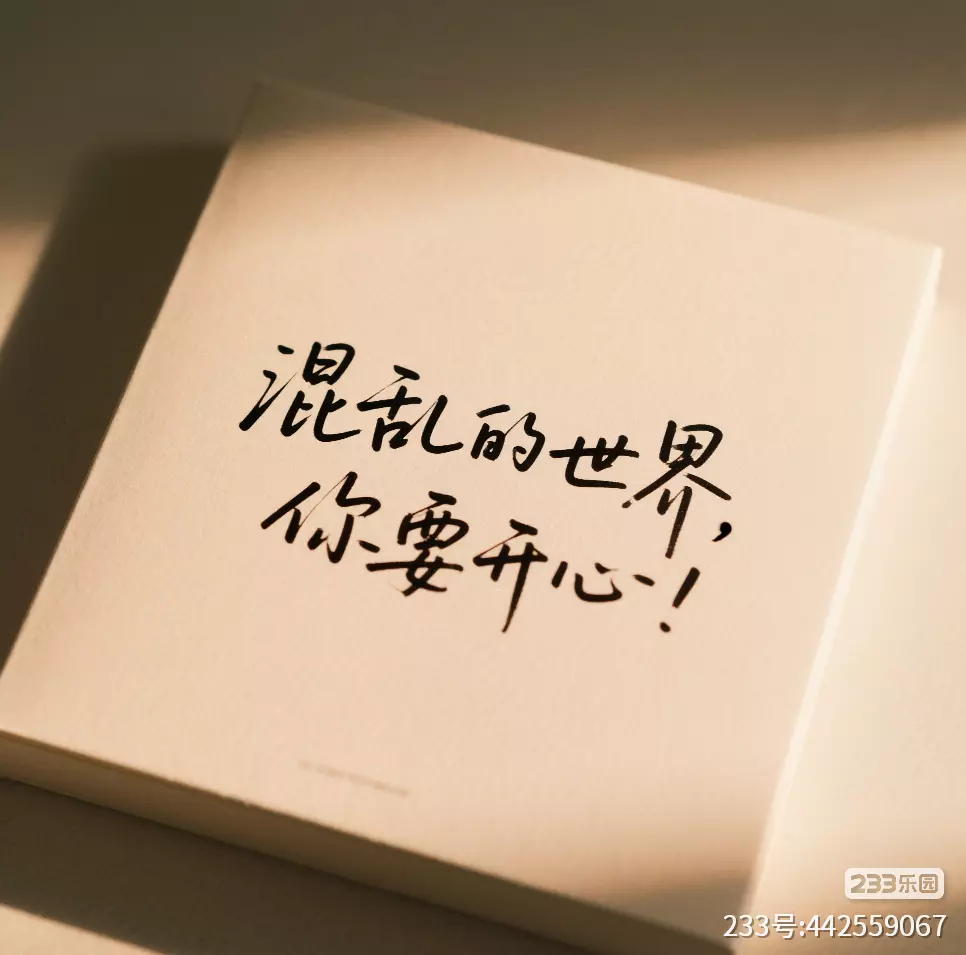 混乱的世界,
你要开心!
233乐园
233号:442559067